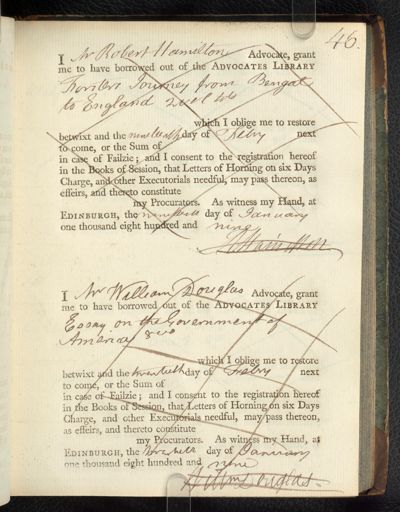 46.
I Mr Robert Hamilton Advocate, grant
me to have borrowed out of the ADVOCATES LIBRARY
Forsters Journey from Bengal
to England 2 vol 4to
which I oblige me to restore
betwixt and the nineteenth day of Febry next
to come, or the Sum of
in case of Failzie; and I consent to the registration hereof
in the Books of Session, that Letters of Horning on six Days
Charge, and other Executorials needful, may pass thereon, as
effeirs, and thereto constitute
my Procurators. As witness my Hand, at
EDINBURGH, the nineteenth day of January
one thousand eight hundred and nine
I Mr William Douglas Advocate, grant
me to have borrowed out of the ADVOCATES LIBRARY
Essay on the Government of
America 8vo
which I oblige me to restore
betwixt and the twentieth day of Febry next
to come, or the Sum of
in case of Failzie; and I consent to the registration hereof
in the Books of Session, that Letters of Horning on six Days
Charge, and other Executorials needful, may pass thereon,
as effeirs, and thereto constitute
my Procurators. As witness my Hand, at
EDINBURGH, the day of January
one thousand eight hundred and nine
Wm Douglas